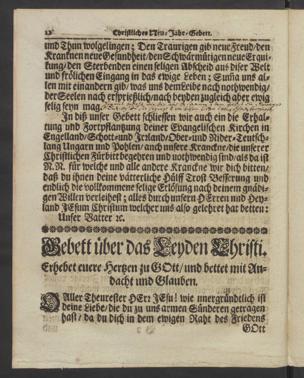 12 Christliches Neu-Jahrs-Gebett.
und Thun wolgelingen; Den Traurigen gib neue Freud/den
Krancknen neue Gesundheit/den Schwärmütigen neue Erqui-
kung/den Sterbenden einen seligen Abscheid aus diser Welt
und frölichen Eingang in das ewige Leben; Suma uns al-
len mit einander gib/was uns dem Leibe nach nohtwendig/
der Seelen nach ersprießlich/nach beyden zugleich aber ewig
selig seyn mag.
In diß unser Gebett schliessen wir auch ein die Erhal-
tung und Fortpflantzung deiner Evangelischen Kirchen in
Engelland/Schott-und Irrland/Ober-und Nider-Teutsch-
lang Ungarn und Pohlen/auch unsere Krancke/die unserer
Christlichen Fürbitt begehren und nothwendig sind/als da ist
N.N. für welche und alle andere Krancke wir dich bitten/
daß du ihnen deine vätterliche Hülff Trost Besserung und
endlich die vollkommene selige Erlösung nach deinem gnädi-
gen Willen verleihest; alles durch unsern HErren und Hey-
land JEsum Christum welcher uns also gelehret hat betten:
Unser Vatter ꝛc.
Gebett über das Leyden Christi.
Erhebet euere Hertzen zu GOtt/und bettet mit An-
dacht und Glauben.
O Aller Theurester HErr JEsu! wie unergründlich ist
deine Liebe/die du zu uns armen Sünderen getragen
hast/da du dich in dem ewigen Raht des Friedens
GOtt